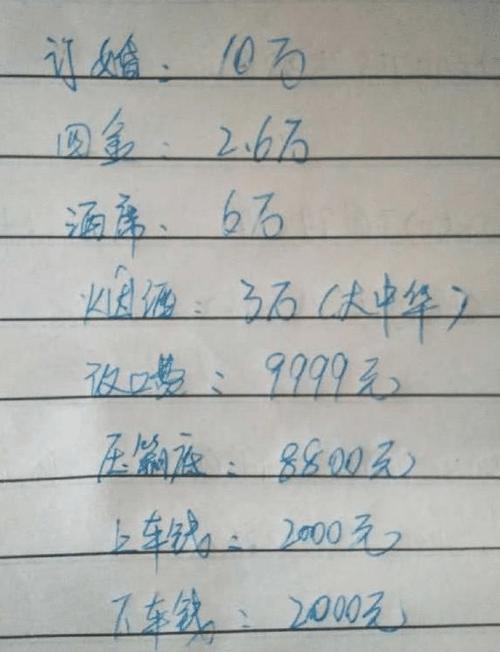 订婚：10万
回金：2.6万
酒席：6万
烟酒：3万（大中华）
改口费：9999元
压箱底：8800元
上车钱：2000元
下车钱：2000元